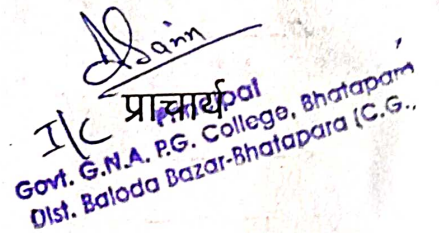 I/C प्राचार्य
Principal
Govt. G.N.A. P.G. College, Bhatapara
Dist. Baloda Bazar-Bhatapara (C.G.,